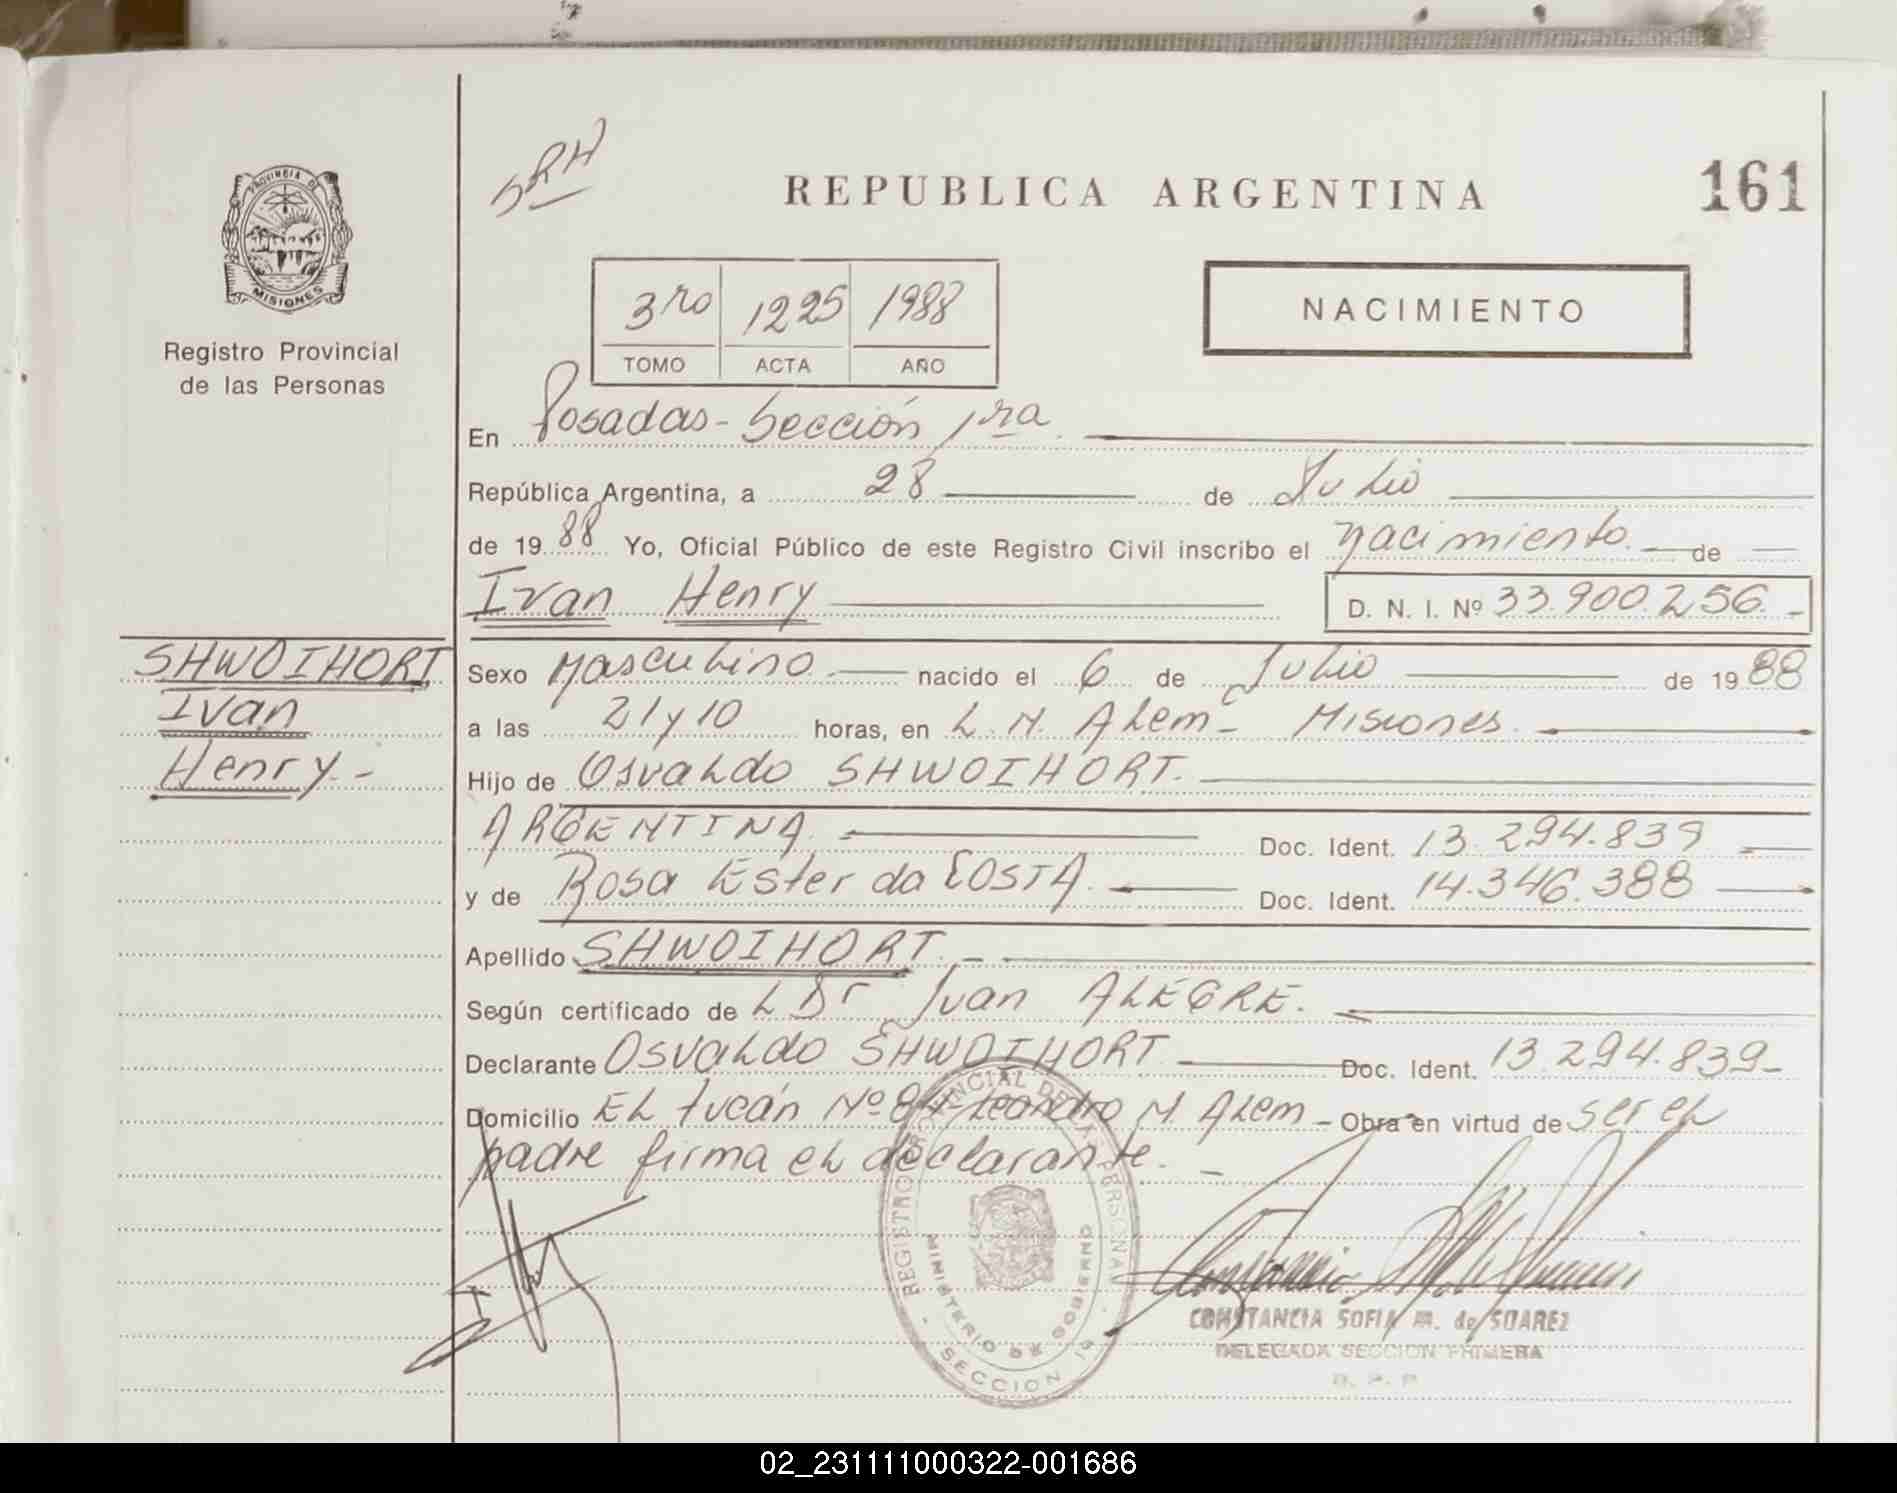 SRH
REPUBLICA ARGENTINA
161
PROVINCIA DE
MISIONES
Registro Provincial
de las Personas
3ro 1225 1988
TOMO ACTA AÑO
NACIMIENTO
En Posadas - Sección 1ra
República Argentina, a 28 de Julio
de 1988 Yo, Oficial Público de este Registro Civil inscribo el nacimiento de
Ivan Henry
D. N. I. Nº 33.900.256.-
SHWOIHORT
Ivan
Henry.-
Sexo Masculino nacido el 6 de Julio de 1988
a las 21 y 10 horas, en L. N. Alem - Misiones.
Hijo de Osvaldo SHWOIHORT.
ARGENTINA. Doc. Ident. 13.294.839
y de Rosa Ester da COSTA. Doc. Ident. 14.346.388
Apellido SHWOIHORT.-
Según certificado de L Dr Juan ALEGRE.
Declarante Osvaldo SHWOIHORT Doc. Ident. 13.294.839-
Domicilio El tucán Nº 84 - Leandro N Alem - Obra en virtud de ser el
padre firma el declarante.-
REGISTRO PROVINCIAL DE LAS PERSONAS
MINISTERIO DE GOBIERNO
SECCION
CONSTANCIA SOFIA M. de SUAREZ
DELEGADA SECCION PRIMERA
R. P. P
02_231111000322-001686